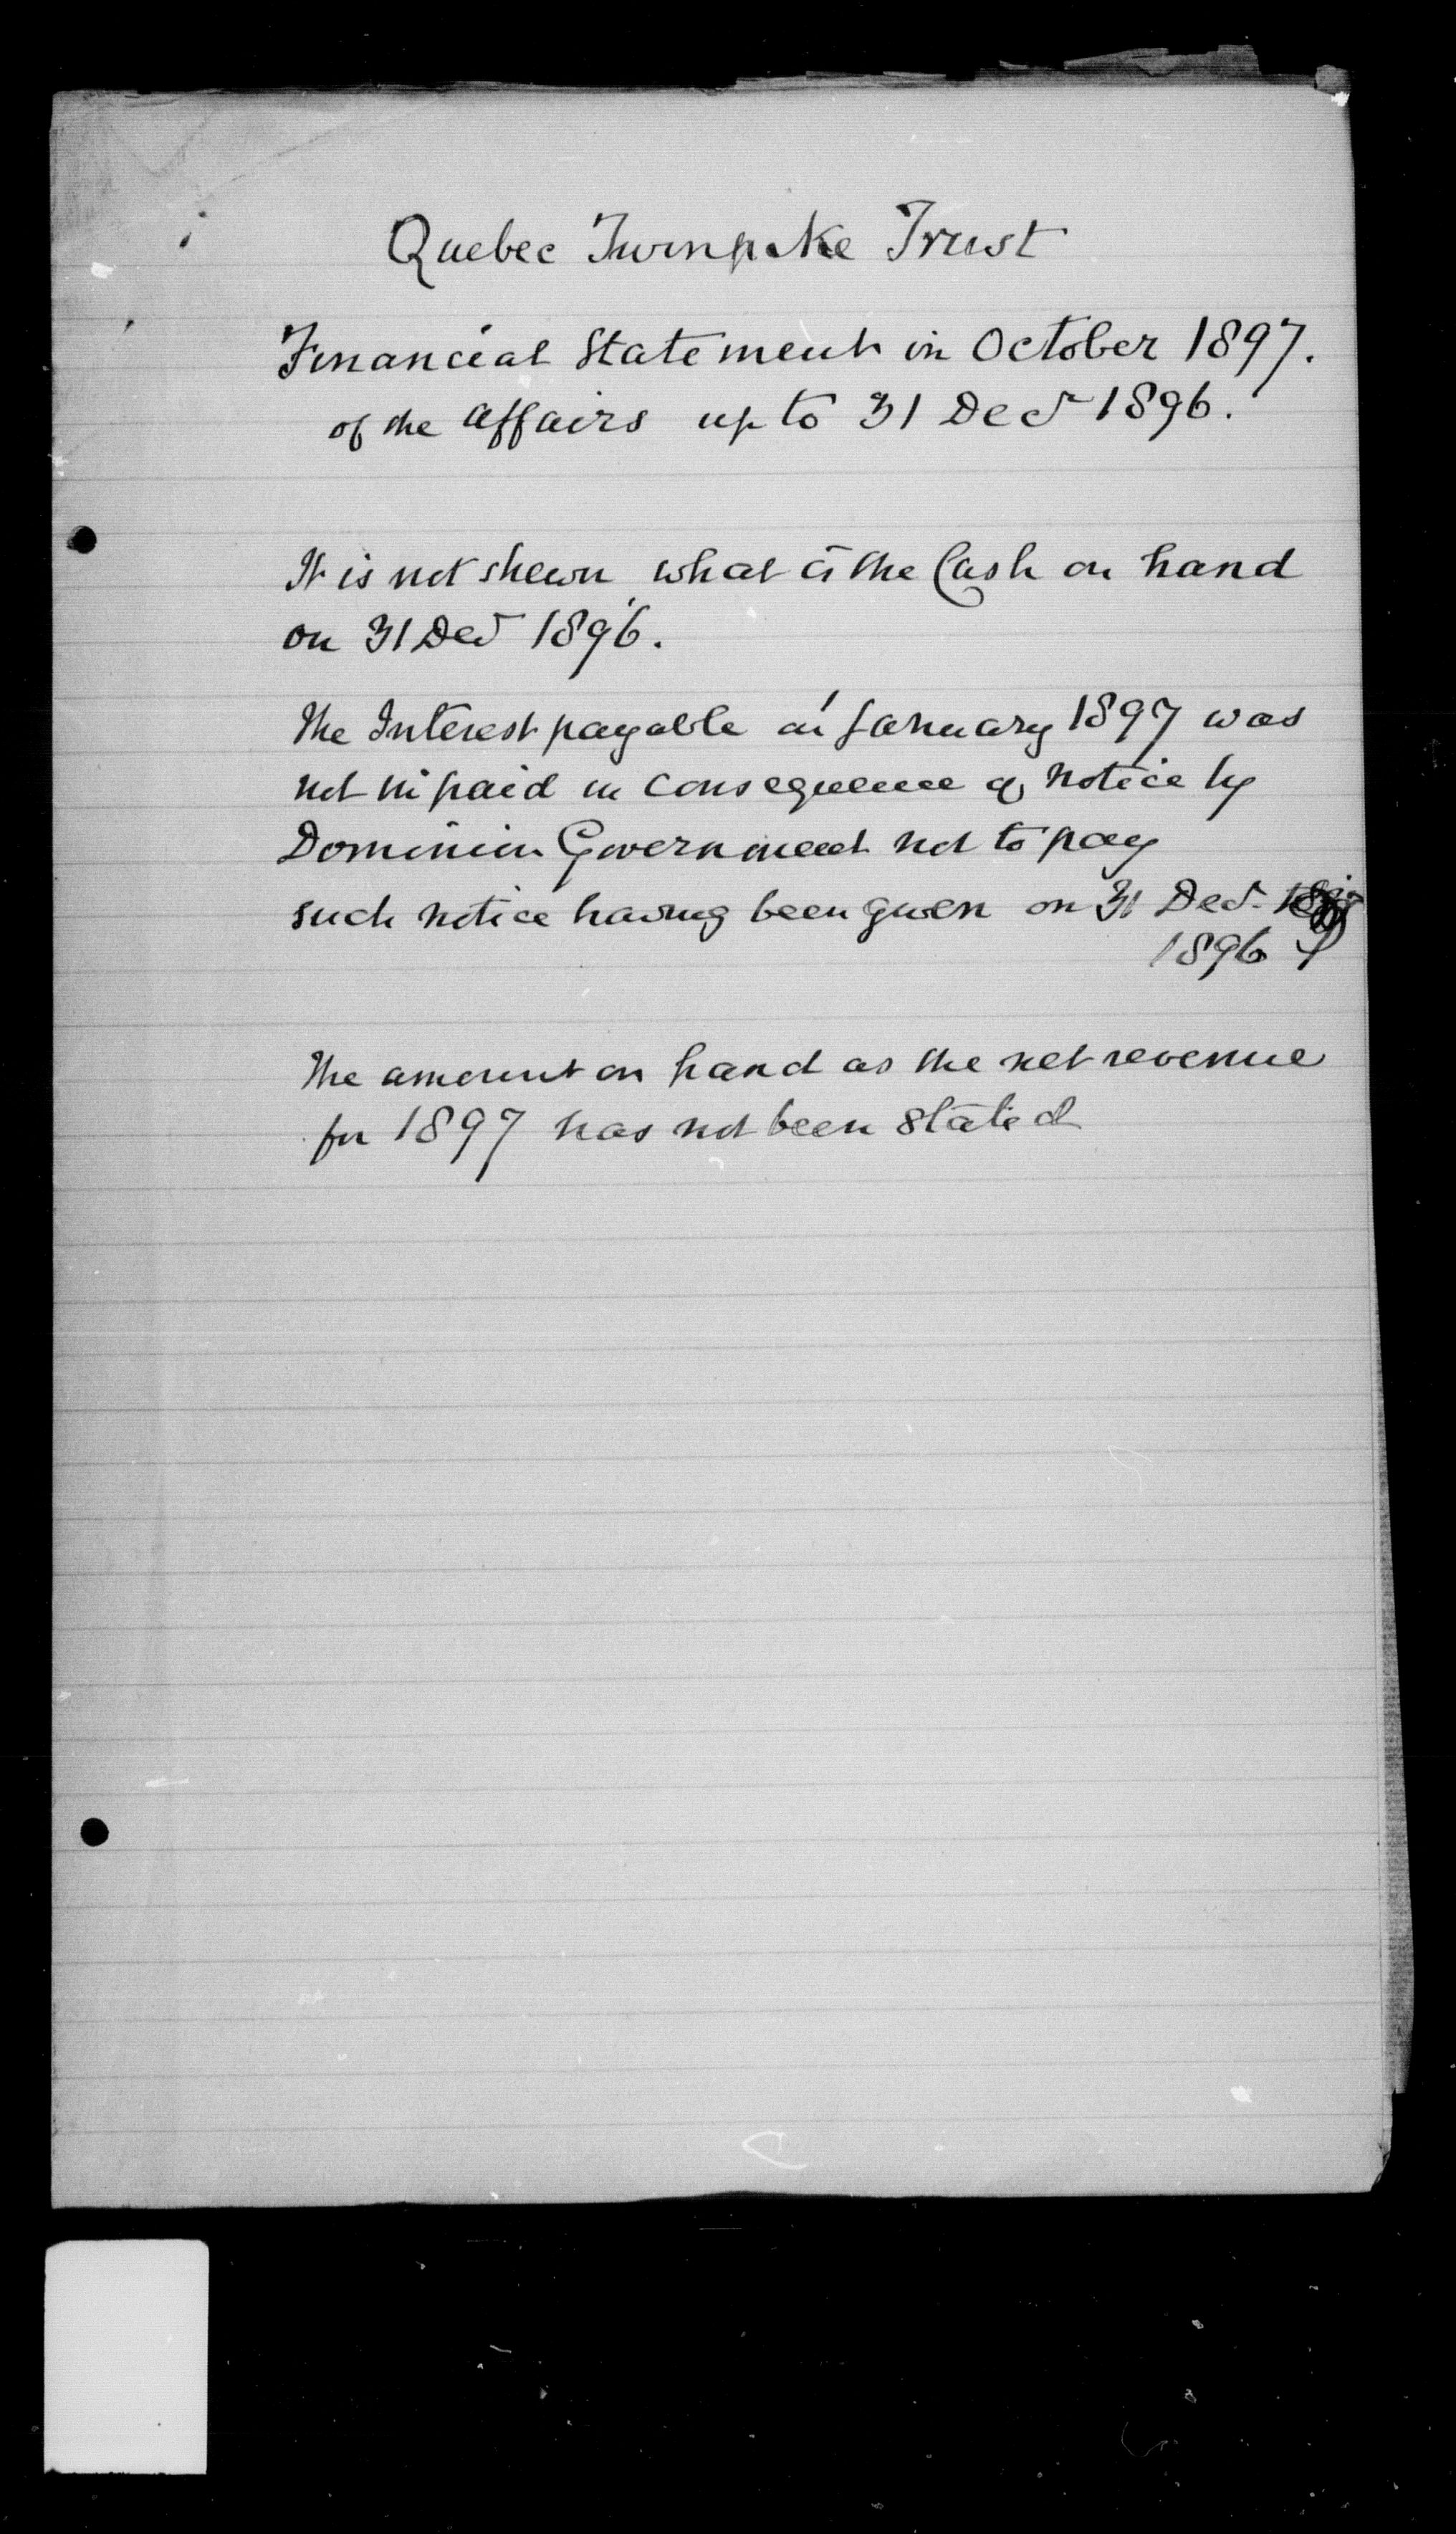 Quebec Turnpike Trust
Financial Statement in October 1897.
of the affairs up to 31 Decr 1896.
It is not shewn what is the Cash on hand
on 31 Decr 1896.
The Interest payable in January 1897 was
not paid in consequence of notice by
Dominion Government not to pay
such notice having been given on 31 Decr
1896
The amount on hand as the net revenue
for 1897 has not been stated